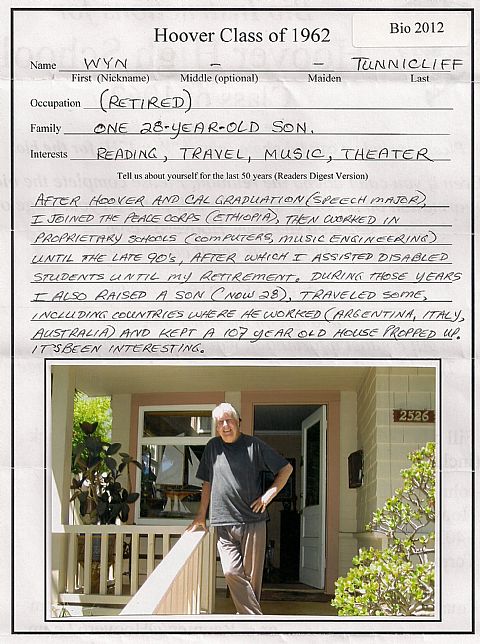 Hoover Class of 1962
Bio 2012
Name WYN - - TUNNICLIFF
First (Nickname) Middle (optional) Maiden Last
Occupation (RETIRED)
Family ONE 28-YEAR-OLD SON.
Interests READING, TRAVEL, MUSIC, THEATER
Tell us about yourself for the last 50 years (Readers Digest Version)
AFTER HOOVER AND CAL GRADUATION (SPEECH MAJOR),
I JOINED THE PEACE CORPS (ETHIOPIA), THEN WORKED IN
PROPRIETARY SCHOOLS (COMPUTERS, MUSIC ENGINEERING)
UNTIL THE LATE 90'S, AFTER WHICH I ASSISTED DISABLED
STUDENTS UNTIL MY RETIREMENT. DURING THOSE YEARS
I ALSO RAISED A SON (NOW 28), TRAVELED SOME,
INCLUDING COUNTRIES WHERE HE WORKED (ARGENTINA, ITALY,
AUSTRALIA) AND KEPT A 107 YEAR OLD HOUSE PROPPED UP.
IT'S BEEN INTERESTING.
2526